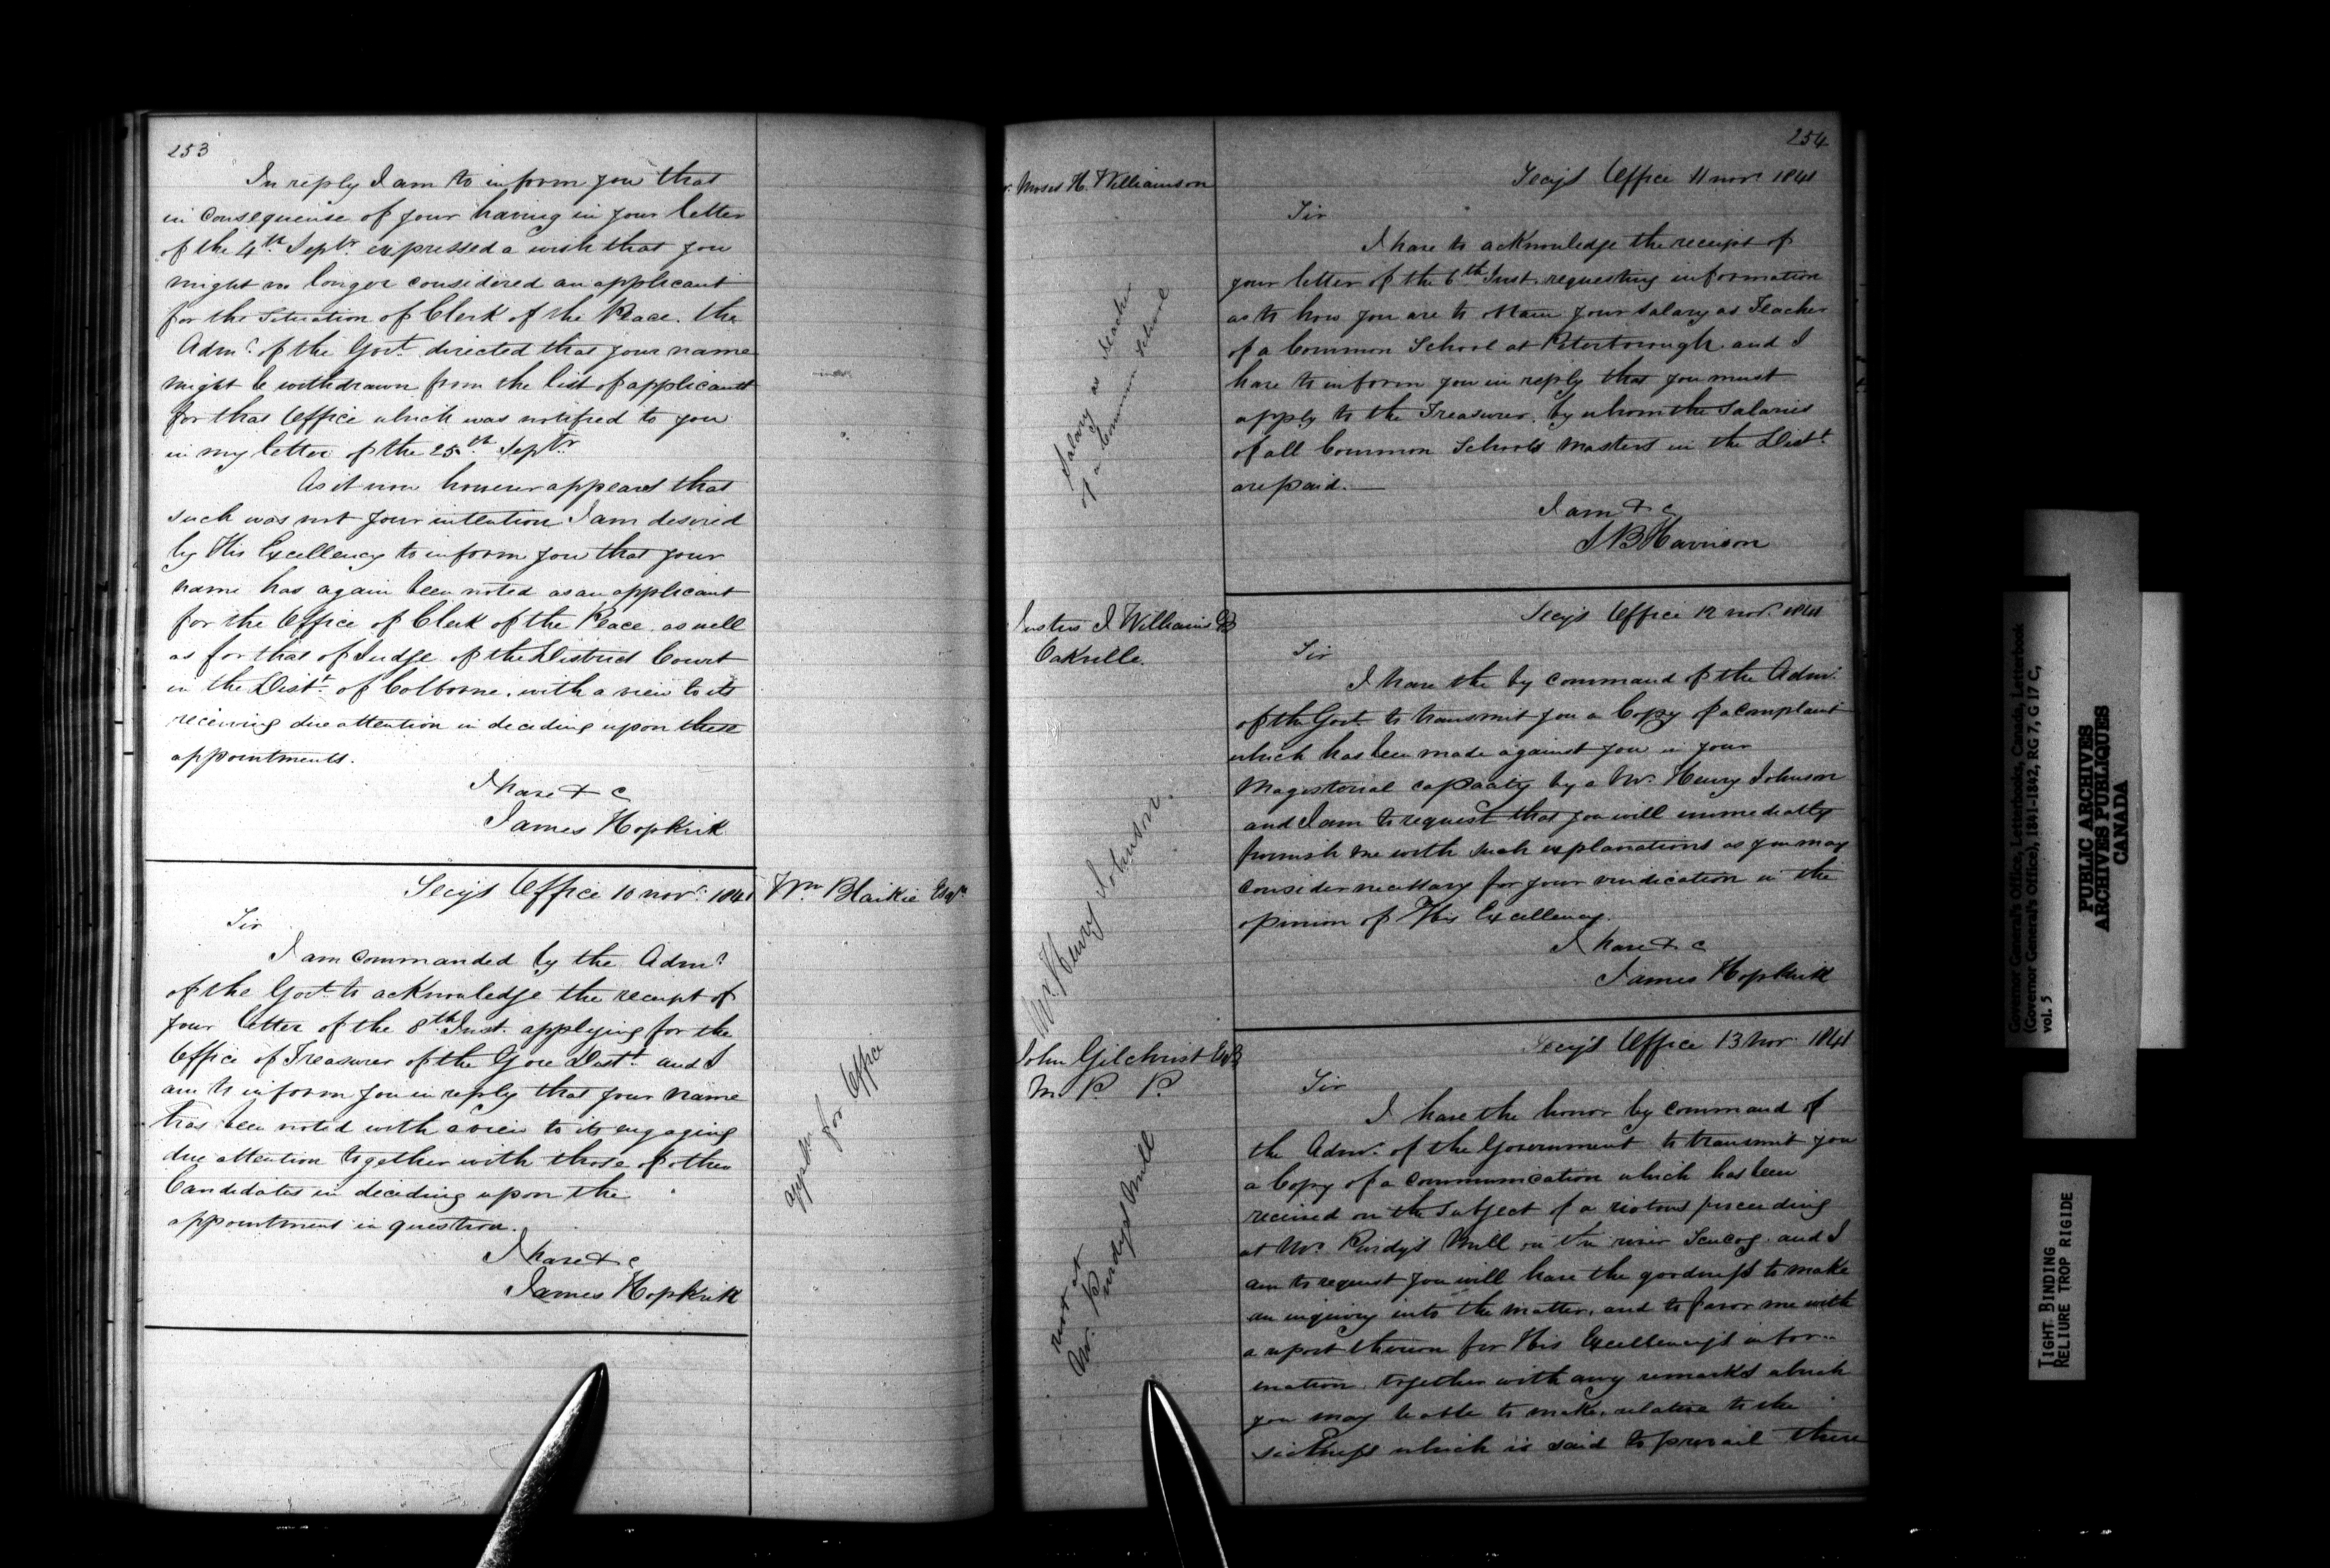 253
In reply I am to inform you that
in consequense of your having in your letter
of the 4th Septr. expressed a wish that you
might no longer considered an applicant
for the situation of Clerk of the Peace. the
Admr. of the Govt. directed that your name
might be withdrawn from the list of applicants
for that Office which was notified to you
in my letter of the 25th Septr
As it now however appears that
such was not your intention I am desired
by His Excellency to inform you that your
name has again been noted as an applicant
for the Office of Clerk of the Peace. as well
as for that of Judge of the District Court
in the Distt. of Colborne. with a view to its
receiving due attention in deciding upon these
appointments.
I have & c
James Hopkirk
Secys Office 10 novr. 1841
Wm Blaikie Esqr
Sir
I am commanded by the Admr
of the Govt. to acknowledge the receipt of
your letter of the 8th Inst. applying for the
Office of Treasurer of the Gore Distt. and I
am to inform you in reply that your name
has been noted with a view to its engaging
due attention together with those of other
Candidates in deciding upon the
appointment in question.
I have & c
James Hopkirk
for Office
254
Moses H. Williamson
Secys Office 11 novr 1841
Sir
I have to acknowledge the receipt of
your letter of the 6th Inst. requesting information
as to how you are to obtain your salary as Teacher
of a Common School at Peterborough. and I
have to inform you in reply that you must
apply to the Treasurer. by whom the Salaries
of all Common Schools Masters in the Distt.
are paid.
I am & c
S B Harrison
Salary as teacher
of a Common School
Justus J Williams
Oakville.
Secys Office 12 novr. 1841
Sir
I have the by command of the Admr.
of the Govt. to transmit you a Copy of a complaint
which has been made against you in your
Magisterial capacity by a Mr. Henry Johnson
and I am to request that you will immediately
furnish me with such explanations as you may
consider necessary for your vindication in the
opinion of His Excellency.
I have & c
James Hopkirk
Mr. Henry Johnson.
John Gilchrist Esqr
M P P.
Secys Office 13 Nov. 1841
Sir
I have the honor by command of
the Admr. of the Government to transmit you
a Copy of a communication which has been
received on the subject of a riotous proceeding
at Mr. Purdy's Mill on the river Scucog. and I
am to request you will have the goodness to make
an inquiry into the matter. and to favor me with
a report thereon for His Excellency's infor-
mation. together with any remarks which
you may be able to make. relative to the
sickness which is said to prevail there
riot at
Mr. Purdys Mill
Governor General's Office, Letterbooks, Canada, Letterbook
(Governor General's Office), 1841-1842, RG 7, G 17 C,
vol. 5
PUBLIC ARCHIVES
ARCHIVES PUBLIQUES
CANADA
TIGHT BINDING
RELIURE TROP RIGIDE